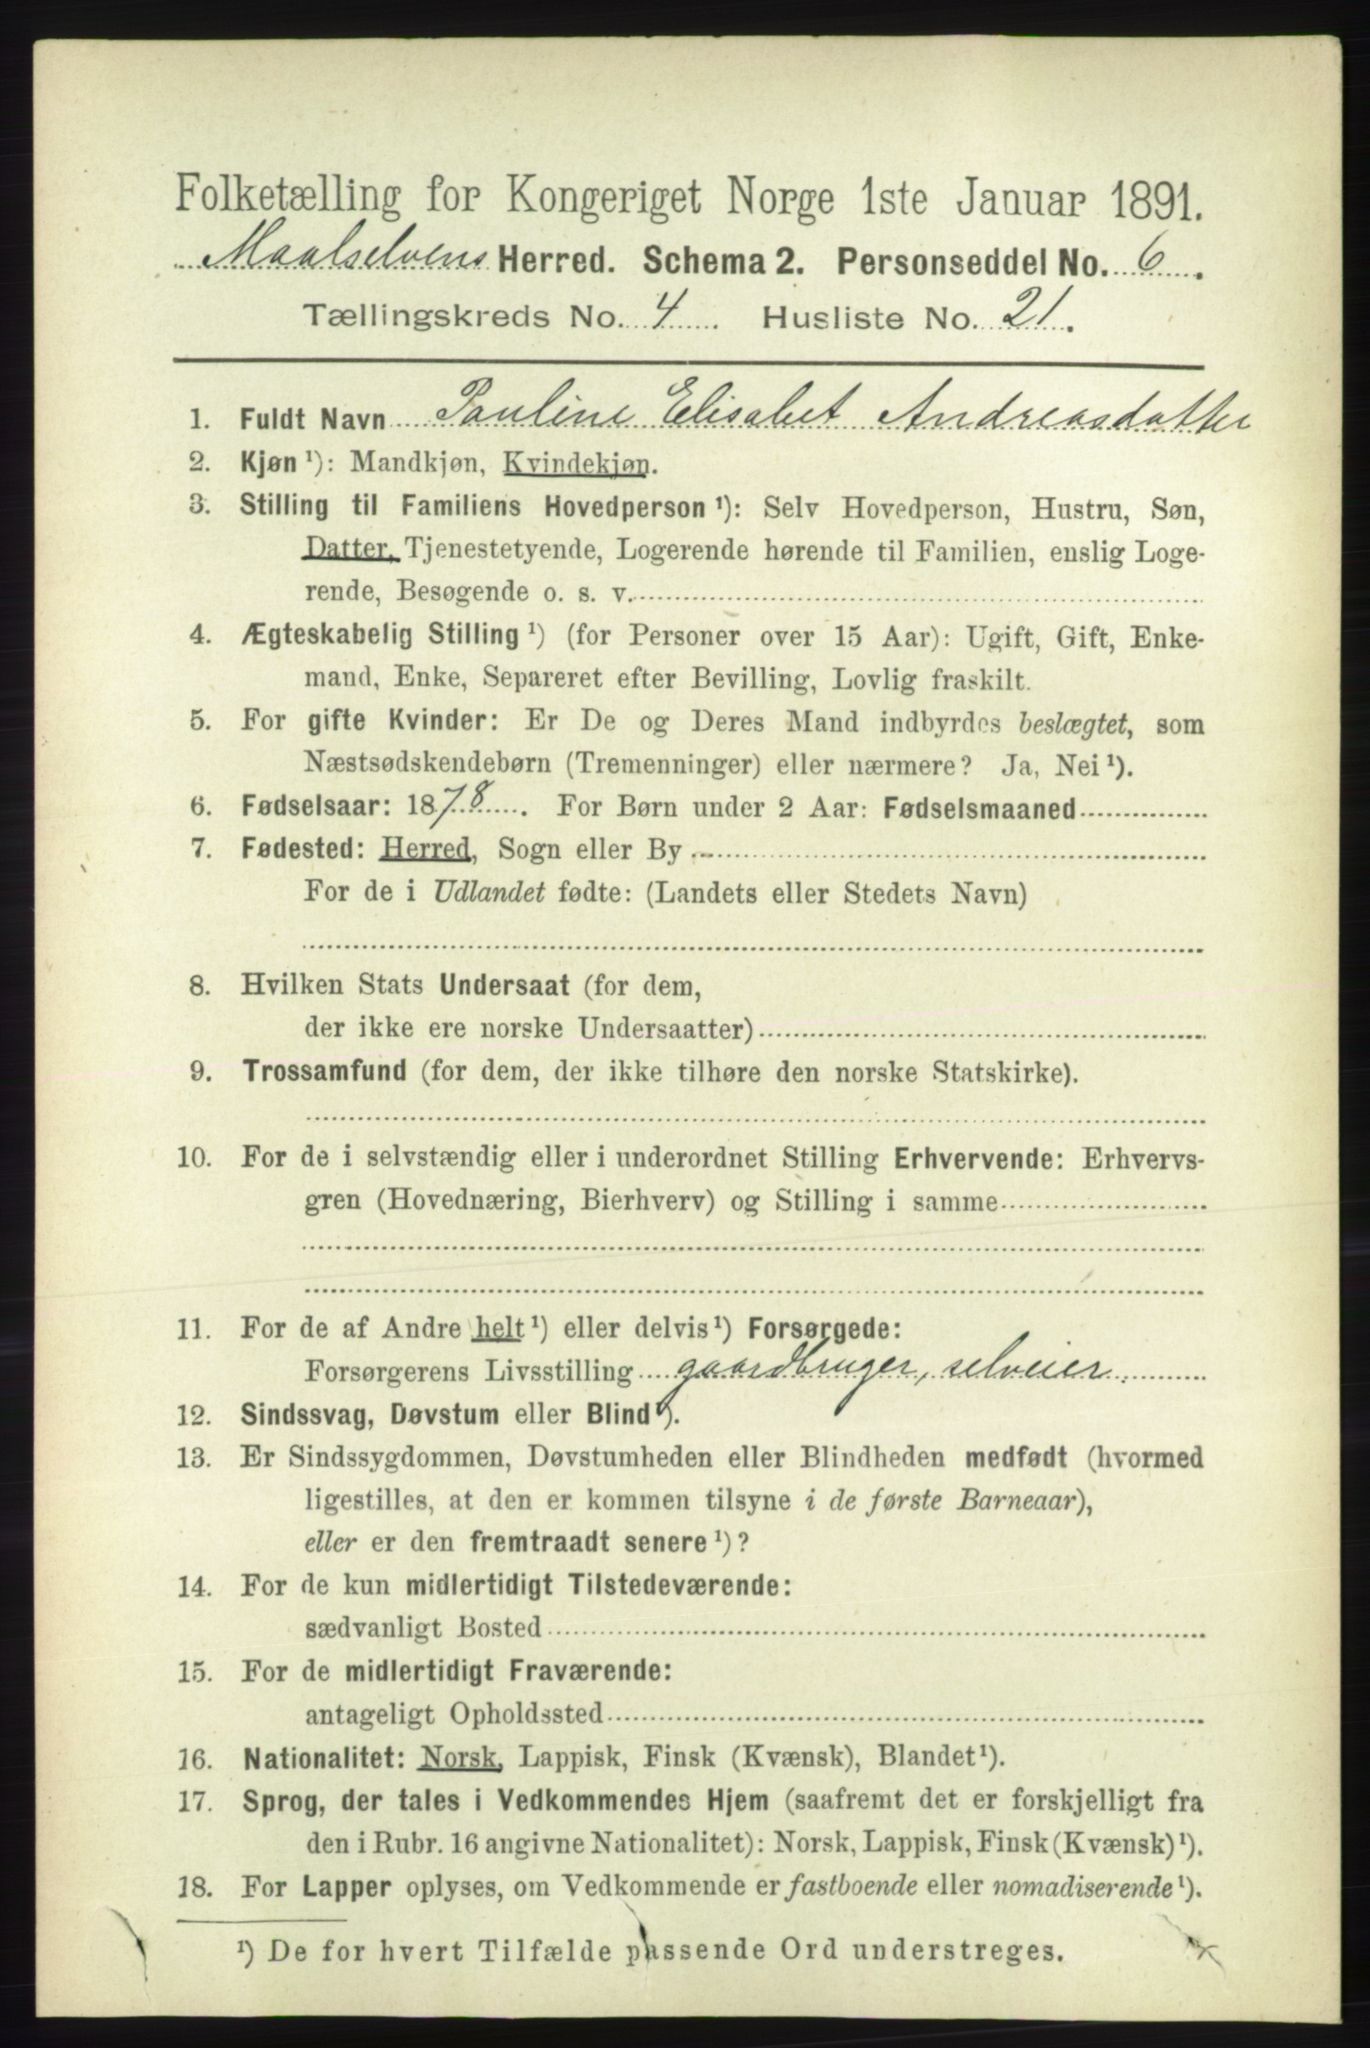 Folketælling for Kongeriget Norge 1ste Januar 1891.
Maalselvens Herred. Schema 2. Personseddel No. 6.
Tællingskreds No. 4. Husliste No. 21.
1. Fuldt Navn Pauline Elisabet Andreasdatter
2. Kjøn ¹): Mandkjøn, Kvindekjøn.
3. Stilling til Familiens Hovedperson ¹): Selv Hovedperson, Hustru, Søn,
Datter, Tjenestetyende, Logerende hørende til Familien, enslig Loge-
rende, Besøgende o. s. v.
4. Ægteskabelig Stilling ¹) (for Personer over 15 Aar): Ugift, Gift, Enke-
mand, Enke, Separeret efter Bevilling, Lovlig fraskilt.
5. For gifte Kvinder: Er De og Deres Mand indbyrdes beslægtet, som
Næstsødskendebørn (Tremenninger) eller nærmere? Ja, Nei ¹).
6. Fødselsaar: 1878. For Børn under 2 Aar: Fødselsmaaned
7. Fødested: Herred, Sogn eller By
For de i Udlandet fødte: (Landets eller Stedets Navn)
8. Hvilken Stats Undersaat (for dem,
der ikke ere norske Undersaatter)
9. Trossamfund (for dem, der ikke tilhøre den norske Statskirke).
10. For de i selvstændig eller i underordnet Stilling Erhvervende: Erhvervs-
gren (Hovednæring, Bierhverv) og Stilling i samme
11. For de af Andre helt ¹) eller delvis ¹) Forsørgede:
Forsørgerens Livsstilling gaardbruger, selveier.
12. Sindssvag, Døvstum eller Blind ¹).
13. Er Sindssygdommen, Døvstumheden eller Blindheden medfødt (hvormed
ligestilles, at den er kommen tilsyne i de første Barneaar),
eller er den fremtraadt senere ¹)?
14. For de kun midlertidigt Tilstedeværende:
sædvanligt Bosted
15. For de midlertidigt Fraværende:
antageligt Opholdssted
16. Nationalitet: Norsk, Lappisk, Finsk (Kvænsk), Blandet ¹).
17. Sprog, der tales i Vedkommendes Hjem (saafremt det er forskjelligt fra
den i Rubr. 16 angivne Nationalitet): Norsk, Lappisk, Finsk (Kvænsk) ¹).
18. For Lapper oplyses, om Vedkommende er fastboende eller nomadiserende ¹).
¹) De for hvert Tilfælde passende Ord understreges.